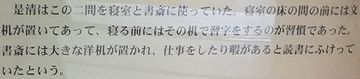 是清はこの二間を寝室と書斎に使っていた。寝室の床の間の前には文
机が置いてあって、寝る前にはその机で習字をするのが習慣であった。
書斎には大きな洋机が置かれ、仕事をしたり暇があると読書にふけって
いたという。